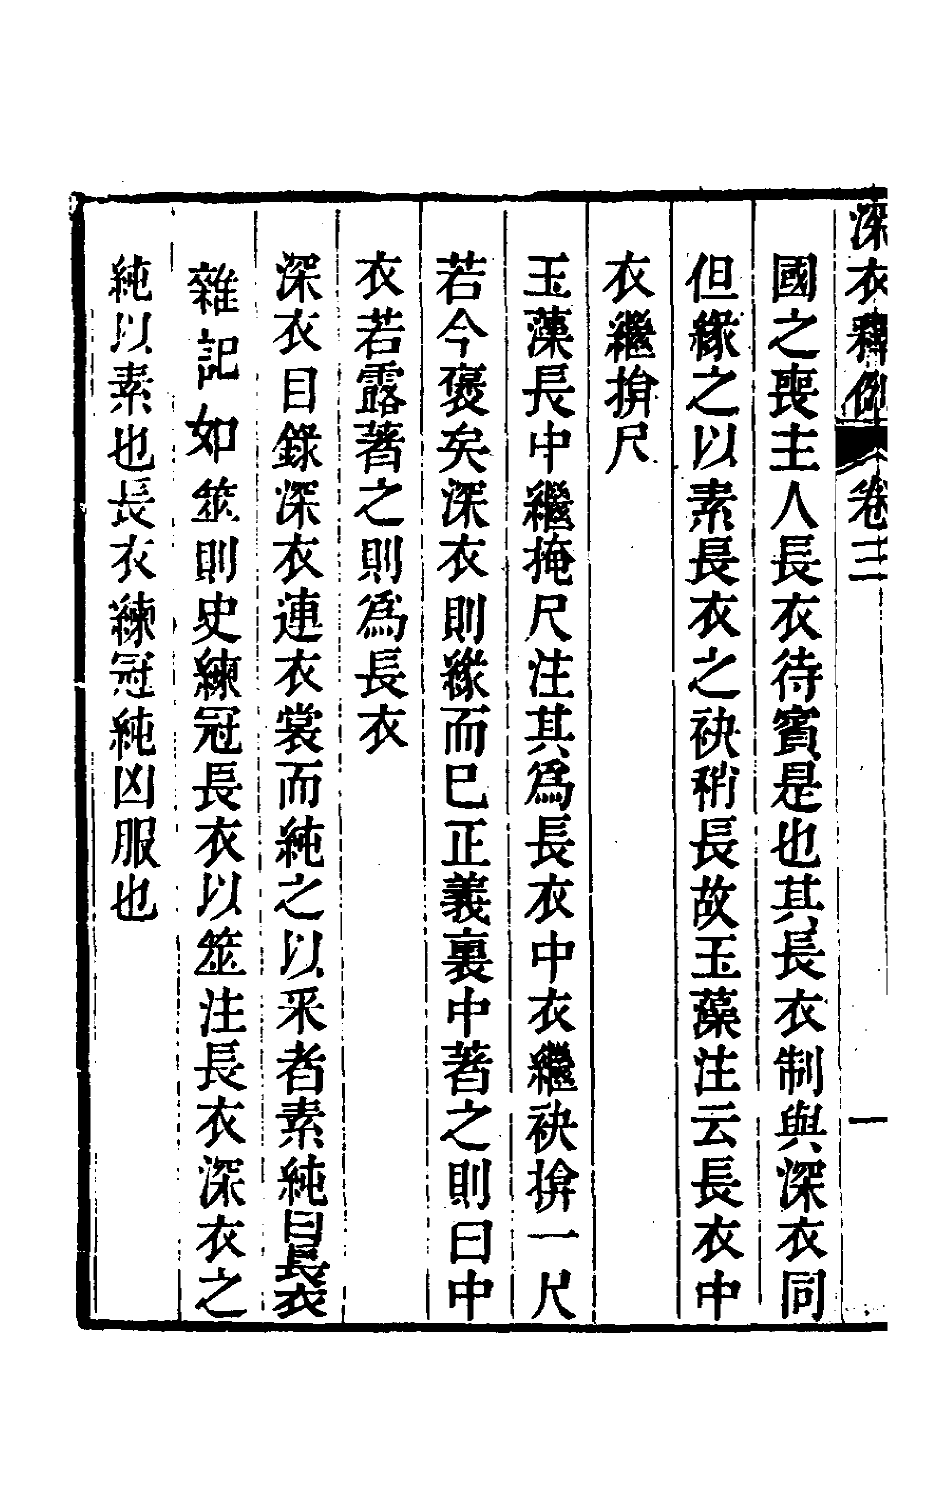 深衣釋例 卷三 一
國之喪主人長衣待賓是也其長衣制與深衣同
但緣之以素長衣之袂稍長故玉藻注云長衣中
衣繼揜尺
玉藻長中繼掩尺注其爲長衣中衣繼袂揜一尺
若今褎矣深衣則緣而已正義裏中著之則曰中
衣若露著之則爲長衣
深衣目錄深衣連衣裳而純之以采者素純曰長衣
雜記如筮則史練冠長衣以筮注長衣深衣之
純以素也長衣練冠純凶服也